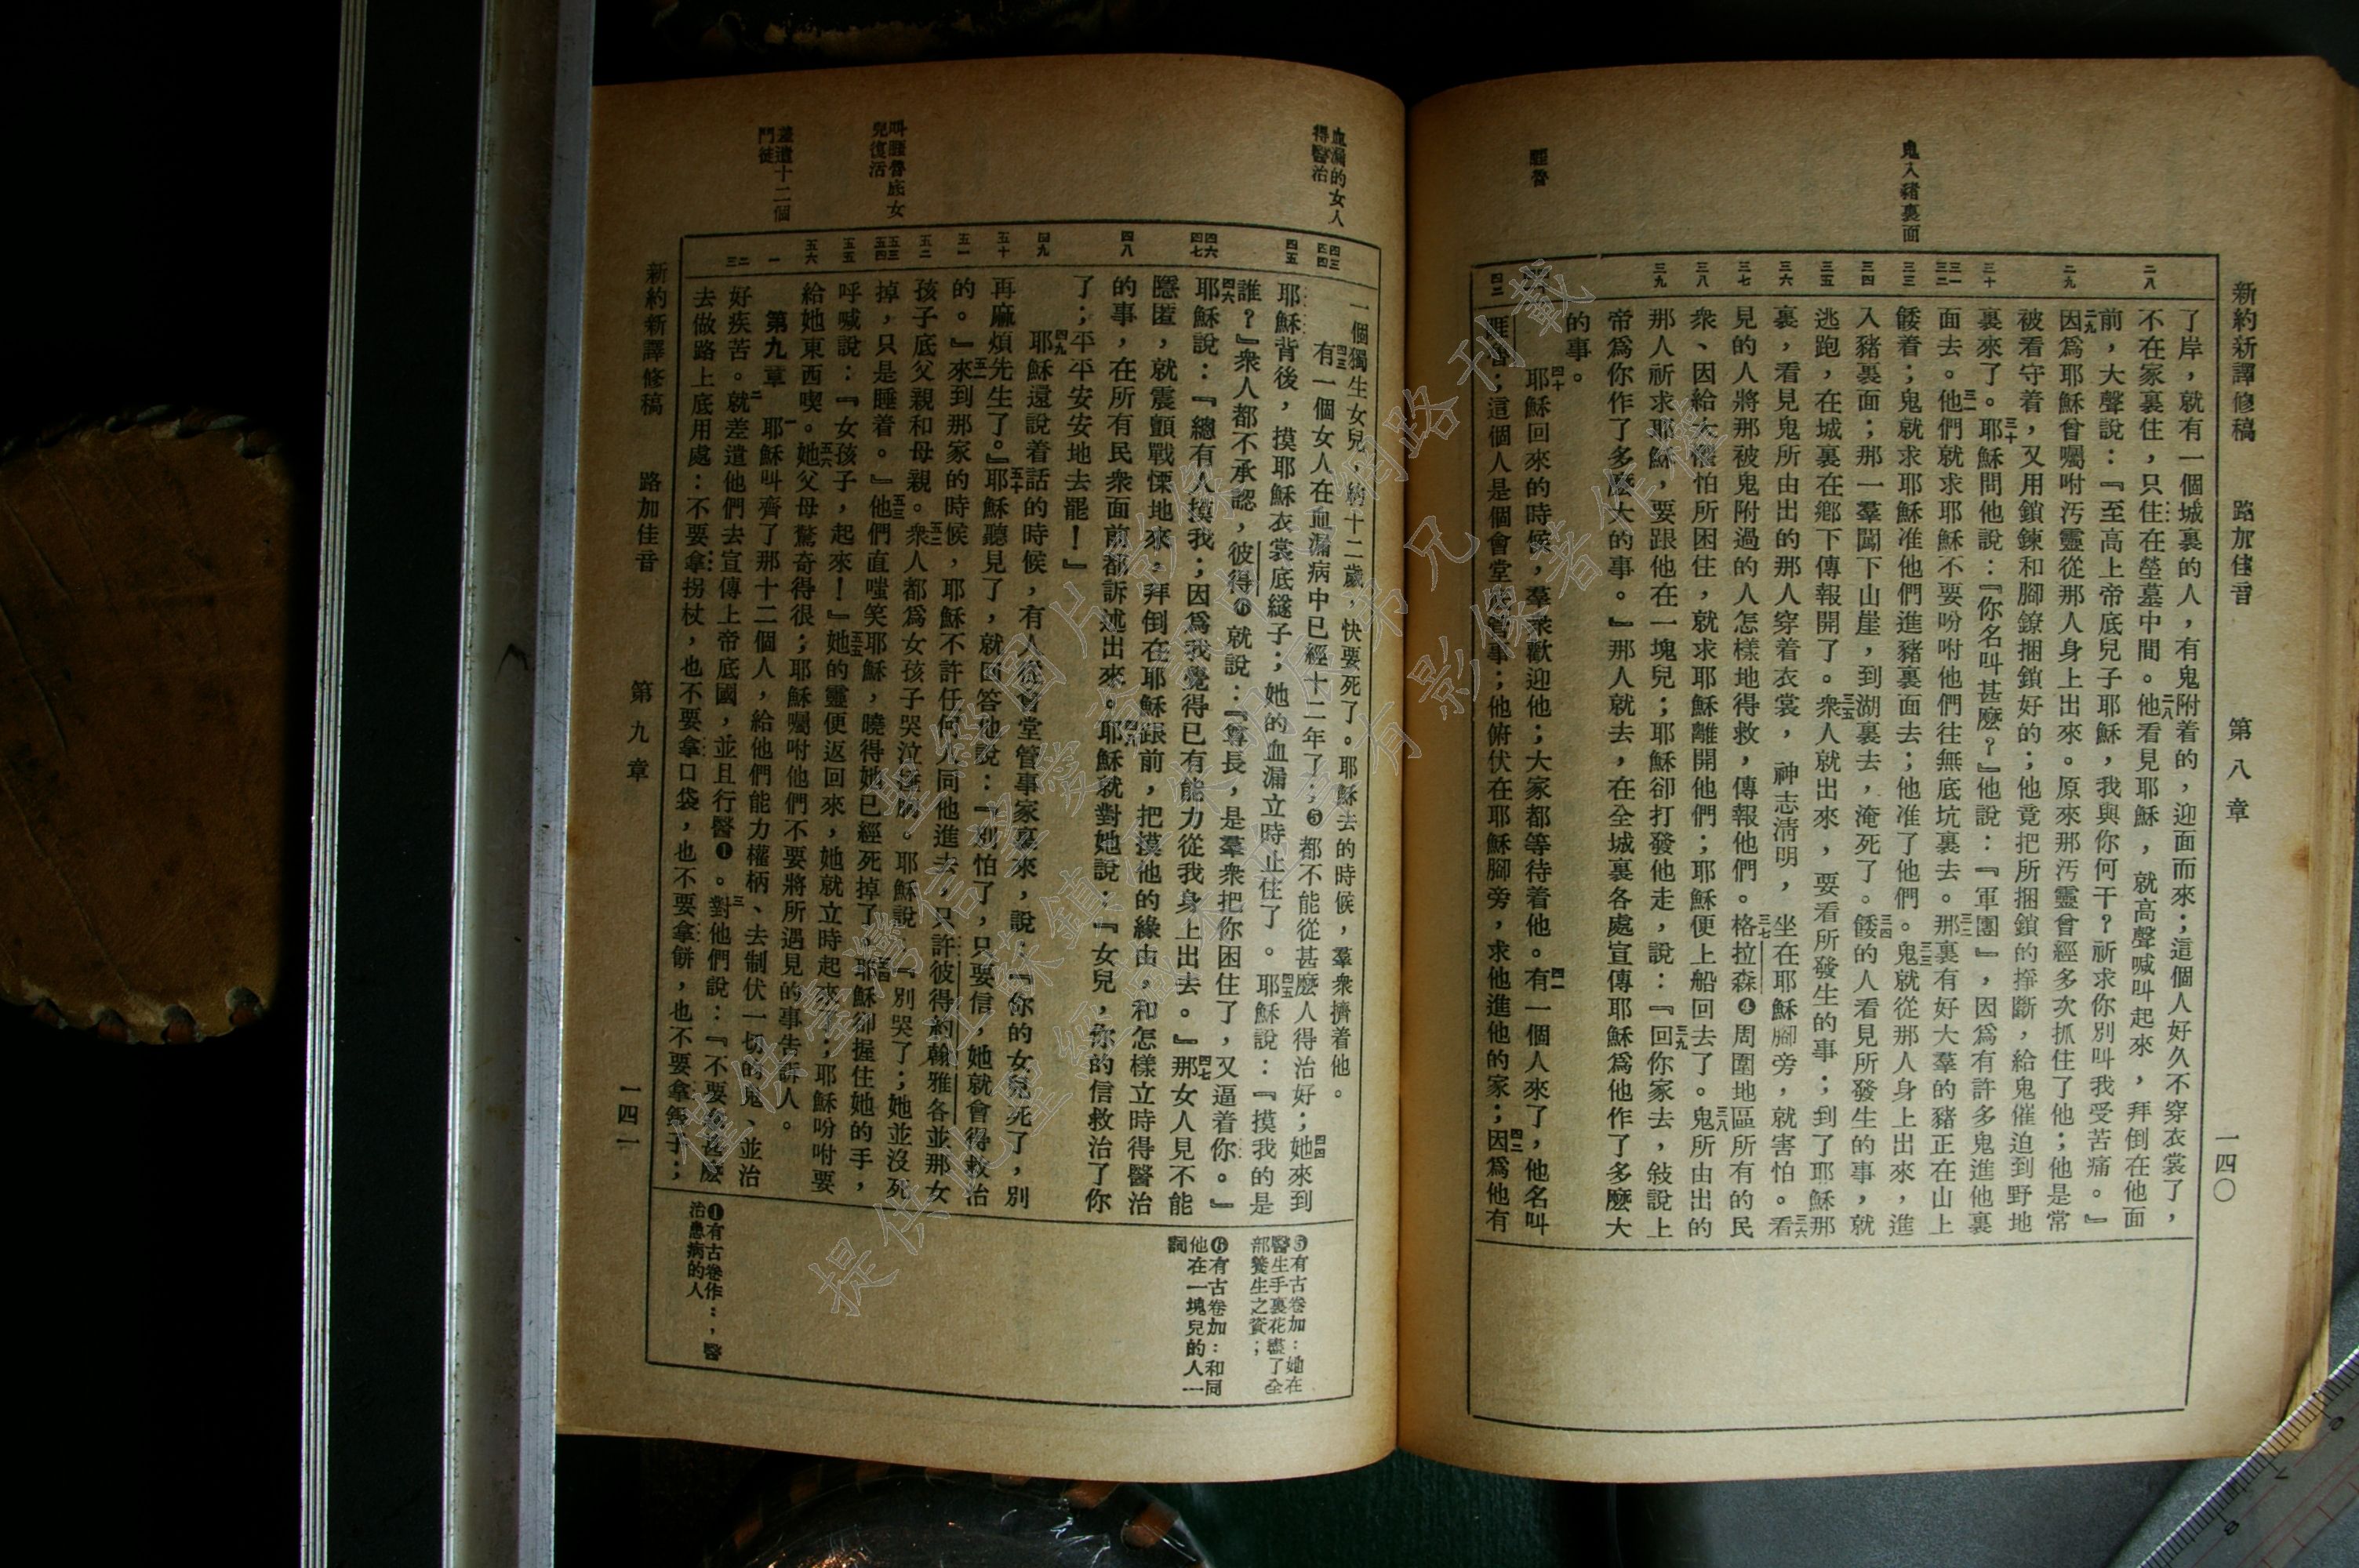 新約新譯修稿　路加佳音　第八章　一四〇
鬼入豬裏面
睚魯
二八
二九
三十
三一
三二
三三
三四
三五
三六
三七
三八
三九
四二
了岸，就有一個城裏的人，有鬼附着的，迎面而來；這個人好久不穿衣裳了，
不在家裏住，只住在塋墓中間。二八他看見耶穌，就高聲喊叫起來，拜倒在他面
前，大聲說：『至高上帝底兒子耶穌，我與你何干？祈求你別叫我受苦痛。』
二九因爲耶穌曾囑咐汚靈從那人身上出來。原來那汚靈曾經多次抓住了他；他是常
被看守着，又用鎖鍊和腳鐐捆鎖好的；他竟把所捆鎖的掙斷，給鬼催迫到野地
裏來了。三十耶穌問他說：『你名叫甚麽？』他說：『軍團』，因爲有許多鬼進他裏
面去。三一他們就求耶穌不要吩咐他們往無底坑裏去。三二那裏有好大羣的豬正在山上
餧着；鬼就求耶穌准他們進豬裏面去；他准了他們。三三鬼就從那人身上出來，進
入豬裏面；那一羣闖下山崖，到湖裏去，淹死了。三四餧的人看見所發生的事，就
逃跑，在城裏在鄉下傳報開了。三五衆人就出來，要看所發生的事；到了耶穌那
裏，看見鬼所由出的那人穿着衣裳，神志清明，坐在耶穌腳旁，就害怕。三六看
見的人將那被鬼附過的人怎樣地得救，傳報他們。三七格拉森❹周圍地區所有的民
衆、因給大懼怕所困住，就求耶穌離開他們；耶穌便上船回去了。三八鬼所由出的
那人祈求耶穌，要跟他在一塊兒；耶穌卻打發他走，說：『三九回你家去，敍說上
帝爲你作了多麽大的事。』那人就去，在全城裏各處宣傳耶穌爲他作了多麽大
的事。
四十耶穌回來的時候，羣衆歡迎他；大家都等待着他。四一有一個人來了，他名叫
睚魯；這個人是個會堂底管事；他俯伏在耶穌腳旁，求他進他的家；四二因爲他有
血漏的女人
得醫治
叫睚魯底女
兒復活
差遣十二個
門徒
四三
四四
四五
四六
四七
四八
四九
五十
五一
五二
五三
五四
五五
五六
一
二
三
一個獨生女兒，約十二歲，快要死了。耶穌去的時候，羣衆擠着他。
四三有一個女人在血漏病中已經十二年了；❺都不能從甚麽人得治好；四四她來到
耶穌背後，摸耶穌衣裳底縫子；她的血漏立時止住了。四五耶穌說：『摸我的是
誰？』衆人都不承認，彼得❻就說：『尊長，是羣衆把你困住了，又逼着你。』
四六耶穌說：『總有人摸我；因爲我覺得已有能力從我身上出去。』四七那女人見不能
隱匿，就震顫戰慄地來，拜倒在耶穌跟前，把摸他的緣由，和怎樣立時得醫治
的事，在所有民衆面前都訴述出來。四八耶穌就對她說：『女兒，你的信救治了你
了；平平安安地去罷！』
四九耶穌還說着話的時候，有人從會堂管事家裏來，說：『你的女兒死了，別
再麻煩先生了。』五十耶穌聽見了，就回答他說：『別怕了，只要信，她就會得救治
的。』五一來到那家的時候，耶穌不許任何人同他進去，只許彼得約翰雅各並那女
孩子底父親和母親。五二衆人都爲女孩子哭泣捶胸。耶穌說：『別哭了；她並沒死
掉，只是睡着。』五三他們直嗤笑耶穌，曉得她已經死掉了。五四耶穌卻握住她的手，
呼喊說：『女孩子，起來！』五五她的靈便返回來，她就立時起來；耶穌吩咐要
給她東西喫。五六她父母驚奇得很；耶穌囑咐他們不要將所遇見的事告訴人。
第九章　一耶穌叫齊了那十二個人，給他們能力權柄、去制伏一切的鬼、並治
好疾苦。二就差遣他們去宣傳上帝底國，並且行醫❶。三對他們說：『不要拿甚麽
去做路上底用處：不要拿拐杖，也不要拿口袋，也不要拿餅，也不要拿銀子；
❺有古卷加：她在
醫生手裏花盡了全
部養生之資；
❻有古卷加：和同
他在一塊兒的人一
同
❶有古卷作：，醫
治患病的人
新約新譯修稿　路加佳音　第九章　一四一